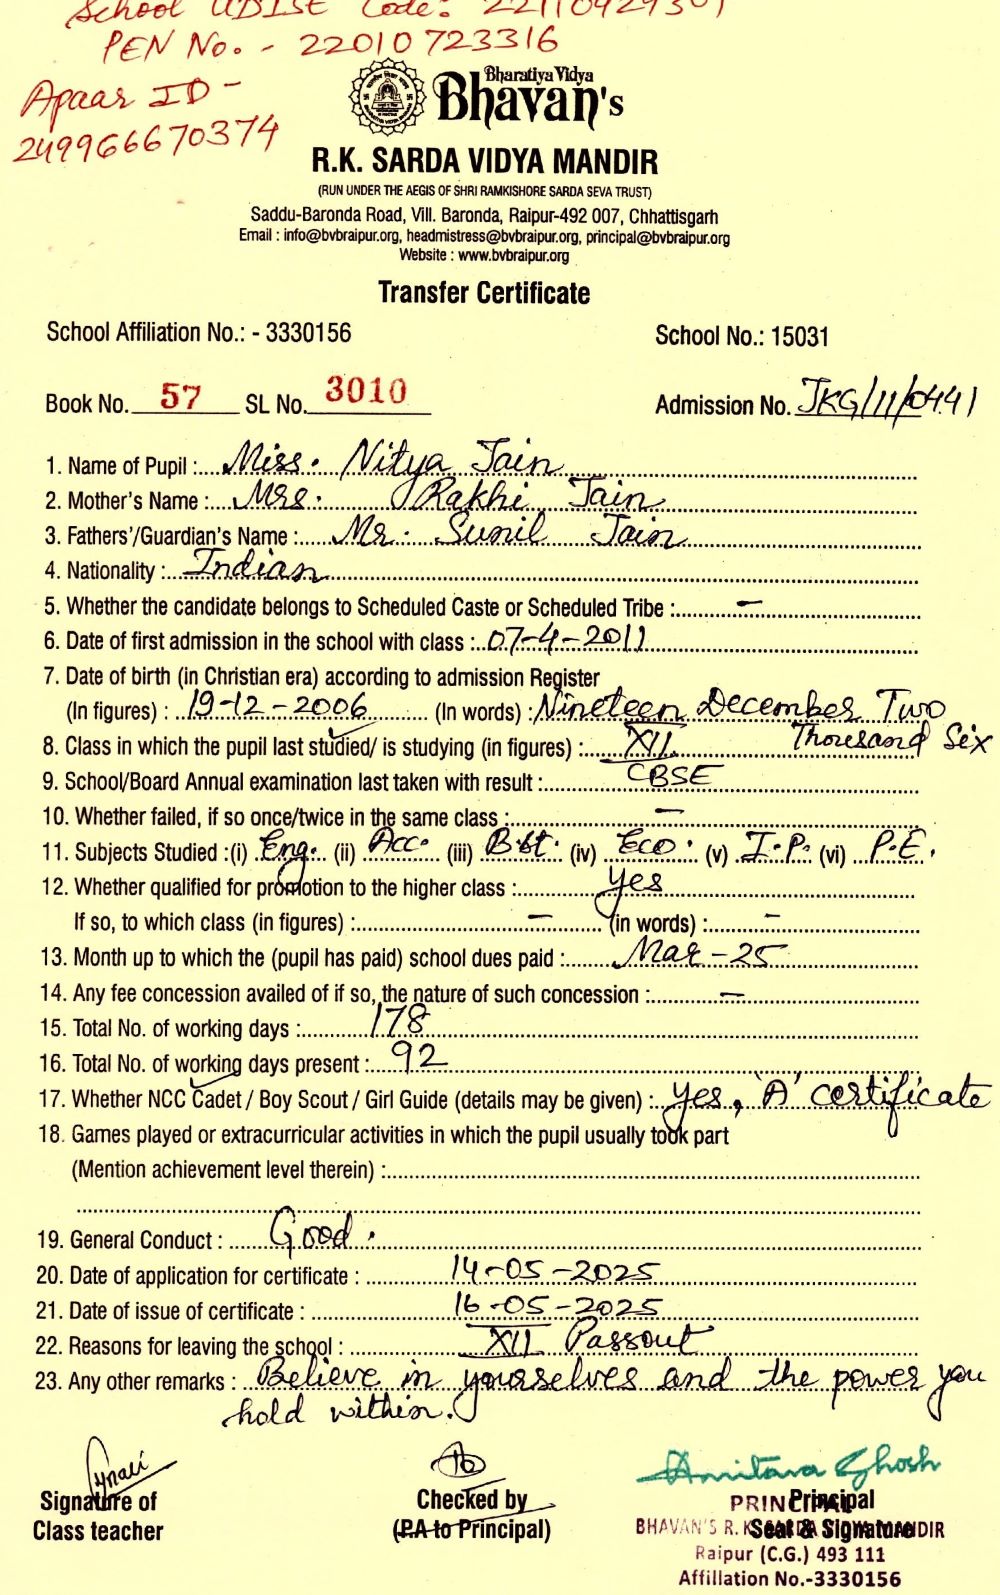 School UDISE Code: 22110429301
PEN No. - 22010723316
Apaar ID -
249966670374
Bharatiya Vidya
Bhavan's
R.K. SARDA VIDYA MANDIR
(RUN UNDER THE AEGIS OF SHRI RAMKISHORE SARDA SEVA TRUST)
Saddu-Baronda Road, Vill. Baronda, Raipur-492 007, Chhattisgarh
Email : info@bvbraipur.org, headmistress@bvbraipur.org, principal@bvbraipur.org
Website : www.bvbraipur.org
Transfer Certificate
School Affiliation No.: - 3330156 School No.: 15031
Book No. 57 SL No. 3010 Admission No. JKG/11/0441
1. Name of Pupil : Miss. Nitya Jain
2. Mother's Name : Mrs. Rakhi Jain
3. Fathers'/Guardian's Name : Mr. Sunil Jain
4. Nationality : Indian
5. Whether the candidate belongs to Scheduled Caste or Scheduled Tribe : -
6. Date of first admission in the school with class : 07-4-2011
7. Date of birth (in Christian era) according to admission Register
(In figures) : 19-12-2006 (In words) : Nineteen December Two
Thousand Six
8. Class in which the pupil last studied/ is studying (in figures) : XII
9. School/Board Annual examination last taken with result : CBSE
10. Whether failed, if so once/twice in the same class : -
11. Subjects Studied :(i) Eng. (ii) Acc. (iii) B.st. (iv) Eco. (v) I.P. (vi) P.E.
12. Whether qualified for promotion to the higher class : yes
If so, to which class (in figures) : - (in words) : -
13. Month up to which the (pupil has paid) school dues paid : Mar-25
14. Any fee concession availed of if so, the nature of such concession : -
15. Total No. of working days : 178
16. Total No. of working days present : 92
17. Whether NCC Cadet / Boy Scout / Girl Guide (details may be given) : yes, 'A' certificate
18. Games played or extracurricular activities in which the pupil usually took part
(Mention achievement level therein) :
19. General Conduct : Good.
20. Date of application for certificate : 14-05-2025
21. Date of issue of certificate : 16-05-2025
22. Reasons for leaving the school : XII Passout
23. Any other remarks : Believe in yourselves and the power you
hold within.
Amitava Ghosh
Signature of
Class teacher
Checked by
(P.A to Principal)
Principal
Seal & Signature
PRINCIPAL
BHAVAN'S R.K. SARDA VIDYA MANDIR
Raipur (C.G.) 493 111
Affillation No.-3330156